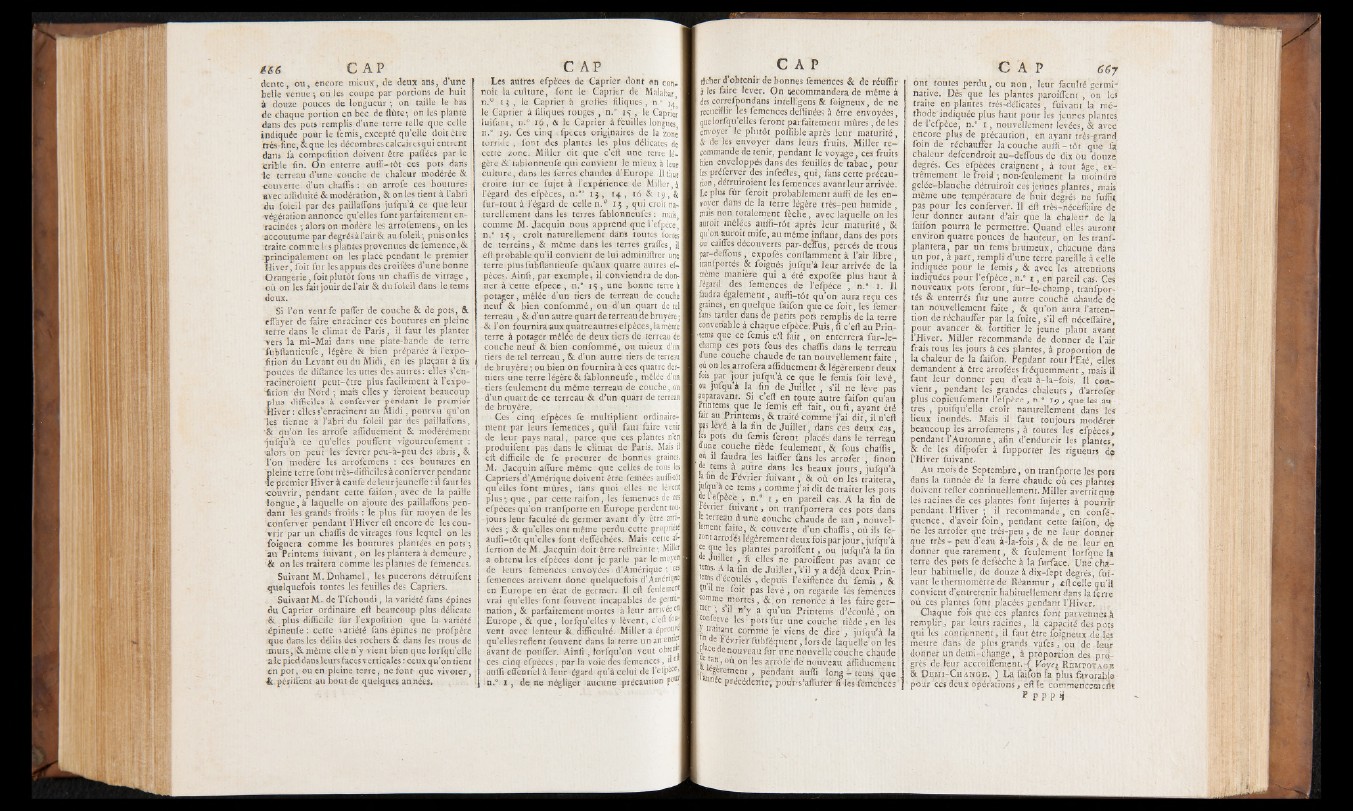 666 CAP
dente, ou, encore mieux, de deux ans, d'une
belle venue; on les coupe par portions de huit
à douze pouces de longueur; on taille le bas
de chaque portion en bec de flûte; on les plante
dans des pots remplis d'une terre telle que celle
indiquée pour le semis, excepté qu'elle doit être
très-fine, & que les décombres calcaires qui entrent
dans sa composition doivent être passées par le
crible fin. On enterre aussi-tôt ces pots dans
le terreau d'une couche de chaleur modérée &
couverte d'un chassis: on arrose ces boutures
avec assiduité & modération, & on les tient à l'abri
du soleil par des paillassons jusqu'à ce que leur
végération annonce qu'elles sont parfaitement en-
racinées; alors on modère les arrosemens, on les
accoutume par degrés à l'air & au soleil; puis on les
traite comme les plantes provenues de semence, &
principalement on les place pendant le premier
Hiver, soit sur les appuis des croisées d'une bonne
Orangerie, soit plutôt sous un chassis de vitrage,
où on les fait jouir de l'air & du soleil dans le tems
doux.
Si l'on veut se passer de couche & de pots, &
essayer de faire enraciner ces boutures en pleine
terre dans le climat de Paris, il faut les planter
vers la mi-Mai dans une plate-bande de terre
substantieuse, légère & bien préparée à l'expo-
sition du Levant ou du Midi, en les plaçant à six
pouces de distance les unes des autres: elles s'en-
racineroient peut-être plus facilement à l'expo-
sition du Nord; mais elles y seroient beaucoup
plus difficiles à conserver pendant le premier
Hiver: elles s'enracinent au Midi, pourvu qu'on
les tienne à l'abri du soleil par des paillassons,
& qu'on les arrose assiduement & modérément
jusqu'à ce qu'elles poussent vigoureusement:
alors on peut les sevrer peu-à-peu des abris, &
l'on modère les arrosemens: ces boutures en
pleine terre sont très-difficiles à conserver pendant
le premier Hiver à cause de leur jeunesse: il faut les
couvrir, pendant cette saison, avec de la paille
longue, à laquelle on ajoute des paillassons pen-
dant les grands froids: le plus sûr moyen de les
conserver pendant l'Hiver est encore de les cou-
vrir par un chassis de vitrages sous lequel on les
soignera comme les boutures plantées en pots;
au Printems suivant, on les plantera à demeure,
& on les traitera comme les plantes de semences.
Suivant M. Duhamel, les pucerons détruisent
quelquefois toutes les feuilles des Capriers.
Suivant M. de Tschoudi, la variété sans épines
du Caprier ordinaire est beaucoup plus délicate
& plus difficile sur l'exposition que la variété
épineuse: cette variété sans épines ne prospère
que dans les délits des rochers & dans les trous de
murs, & même elle n'y vient bien que lorsqu'elle
a le pied dans leurs faces verticales: ceux qu'on tient
en pot, ou en pleine terre, ne font que vivoter,
& périssent au bout de quelques années.
CAP
Les autres espèces de Caprier dont on con-
noît la culture, sont le Caprier de Malabar,
n.° 13, le Caprier à grosses siliques, n.° 14,
le Caprier à siliques rouges, n.° 15, le Caprier
luisant, n.° 16, & le Caprier à feuilles longues,
n.° 19. Ces cinq espèces originaires de la zone
torride, sont des plantes les plus délicates de
cette zone. Miller dit que c'est une terre lé-
gère & sablonneuse qui convient le mieux à leur
culture, dans les serres chaudes d'Europe. Il faut
croire sur ce sujet à l'expérience de Miller, à
l'égard des espèces, n.os 13, 14, 16 & 19, &
sur-tout à l'égard de celle n.° 13, qui croît na-
turellement dans les terres sablonneuses: mais,
comme M. Jacquin nous apprend que l'espèce,
n.° 15, croît naturellement dans toutes sortes
de terreins, & même dans les terres grasses, il
est probable qu'il convient de lui administrer une
terre plus substantieuse qu'aux quatre autres es-
pèces. Ainsi, par exemple, il conviendra de don-
ner à cette espèce, n.° 15, une bonne terre à
potager, mêlée d'un tiers de terreau de couche
neuf & bien consommé, ou d'un quart de tel
terreau, & d'un autre quart de terreau de bruyère;
& l'on fournira aux quatre autres espèces, la même
terre à potager mêlée de deux tiers de terreau de
couche neuf & bien consommé, ou mieux d'un
tiers de tel terreau, & d'un autre tiers de terreau
de bruyère; ou bien on fournira à ces quatre der-
niers une terre légère & sablonneuse, mêlée d'un
tiers seulement du même terreau de couche, ou
d'un quart de ce terreau & d'un quart de terreau
de bruyère.
Ces cinq espèces se multiplient ordinaire-
ment par leurs semences, qu'il faut faire venir
de leur pays natal, parce que ces plantes n'en
produisent pas dans le climat de Paris. Mais il
est difficile de se procurer de bonnes graines.
M. Jacquin assure même que celles de tous les
Capriers d'Amérique doivent être semées aussi-tôt
qu'elles sont mûres, sans quoi elles ne lèvent
plus; que, par cette raison, les semences de ces
espèces qu'on transporte en Europe perdent tou-
jours leur faculté de germer avant d'y être arri-
vées; & qu'elles ont même perdu cette propriété
aussi-tôt qu'elles sont desséchées. Mais cette as-
sertion de M. Jacquin doit être restreinte; Miller
a obtenu les espèces dont je parle par le moyen
de leurs semences envoyées d'Amérique: ces
semences arrivent donc quelquefois d'Amérique
en Europe en état de germer. Il est seulement
vrai qu'elles sont souvent incapables de germi-
nation, & parfaitement mortes à leur arrivée en
Europe, & que, lorsqu'elles y lèvent, c'est sou-
vent avec lenteur & difficulté. Miller a éprouvé
qu'elles restent souvent dans la terre un an entier
avant de pousser. Ainsi, lorsqu'on veut obtenir
ces cinq espèces, par la voie des semences, il est
aussi essentiel à leur égard qu'à celui de l'espèce,
n.° 1, de ne négliger aucune précaution pour
CAP
tâcher d'obtenir de bonnes semences & de réussir
à les faire lever. On recommandera de même à
des correspondans intelligens & soigneux, de ne
recueillir les semences destinées à être envoyées,
que lorsqu'elles seront parfaitement mûres, de les
envoyer le plutôt possible après leur maturité,
& de les envoyer dans leurs fruits. Miller re-
commande de tenir, pendant le voyage, ces fruits
bien enveloppés dans des feuilles de tabac, pour
les préserver des insectes, qui, sans cette précau-
tion, détruiroient les semences avant leur arrivée.
Le plus sûr seroit probablement aussi de les en-
voyer dans de la terre légère très-peu humide,
mais non totalement sèche, avec laquelle on les
auroit mêlées aussi-tôt après leur maturité, &
qu'on auroit mise, au même instant, dans des pots
ou caisses découverts par-dessus, percés de trous
par-dessous, exposés constamment à l'air libre,
transportés & soignés jusqu'à leur arrivée de la
même manière qui a été exposée plus haut à
l'égard des semences de l'espèce, n.° 1. Il
faudra également, aussi-tôt qu'on aura reçu ces
graines, en quelque saison que ce soit, les semer
sans tarder dans de petits pots remplis de la terre
convenable à chaque espèce. Puis, si c'est au Prin-
tems que ce semis est fait, on enterrera sur-le-
champ ces pots sous des chassis dans le terreau
d'une couche chaude de tan nouvellement faite,
où on les arrosera assiduement & légèrement deux
fois par jour jusqu'à ce que le semis soit levé,
ou jusqu'à la fin de Juillet, s'il ne lève pas
auparavant. Si c'est en toute autre saison qu'au
Printems que le semis est fait, ou si, ayant été
fait au Printems, & traité comme j'ai dit, il n'est
pas levé à la fin de Juillet, dans ces deux cas,
les pots du semis seront placés dans le terreau
d'une couche tiède seulement, & sous chassis,
où il faudra les laisser sans les arroser, sinon
de tems à autre dans les beaux jours, jusqu'à
la fin de Février suivant, & où on les traitera,
jusqu'à ce tems, comme j'ai dit de traiter les pots
de l'espèce, n.° 1, en pareil cas. A la fin de
Février suivant, on transportera ces pots dans
le terreau d'une couche chaude de tan, nouvel-
lement faite, & couverte d'un chassis, où ils se-
ront arrosés légérement deux fois par jour, jusqu'à
ce que les plantes paroissent, ou jusqu'à la fin
de Juillet, si elles ne paroissent pas avant ce
tems. A la fin de Juillet, s'il y a déjà deux Prin-
tems d'écoulés, depuis l'existence du semis, &
qu'il ne soit pas levé, on regarde les semences
comme mortes, & on renonce à les faire ger-
mer; s'il n'y a qu'un Printems d'écoulé, on
conserve les pots sur une couche tiède, en les
y traitant comme je viens de dire, jusqu'à la
fin de Février subséquent, lors de laquelle on les
place de nouveau sur une nouvelle couche chaude
de tan, où on les arrose de nouveau assiduement
& légèrement, pendant aussi long-tems que
l'année précédente, pour s'assurer si les semences
CAP 667
ont toutes perdu, ou non, leur faculté germi-
native. Dès que les plantes paroissent, on les
traite en plantes très-délicates, suivant la mé-
thode indiquée plus haut pour les jeunes plantes
de l'espèce, n.° 1, nouvellement levées, & avec
encore plus de précaution, en ayant très-grand
soin de réchauffer la couche aussi-tôt que la
chaleur descendroit au-dessous de dix ou douze
degrés. Ces espèces craignent, à tout âge, ex-
trêmement le froid; non-seulement la moindre
gelée-blanche détruiroit ces jeunes plantes, mais
même une température de huit degrés ne suffit
pas pour les conserver. Il est très-nécessaire de
leur donner autant d'air que la chaleur de la
saison pourra le permettre. Quand elles auront
environ quatre pouces de hauteur, on les trans-
plantera, par un tems brumeux, chacune dans
un pot, à part, rempli d'une terre pareille à celle
indiquée pour le semis, & avec les attentions
indiquées pour l'espèce, n.° 1, en pareil cas. Ces
nouveaux pots seront, sur-le-champ, transpor-
tés & enterrés sur une autre couche chaude de
tan nouvellement faite, & qu'on aura l'atten-
tion de réchauffer par la suite, s'il est nécessaire,
pour avancer & fortifier le jeune plant avant
l'Hiver. Miller recommande de donner de l'air
frais tous les jours à ces plantes, à proportion de
la chaleur de la saison. Pendant tout l'Eté, elles
demandent à être arrosées fréquemment, mais il
faut leur donner peu d'eau à-la-fois. Il con-
vient, pendant les grandes chaleurs, d'arroser
plus copieusement l'espèce, n.° 19, que les au-
tres, puisqu'elle croît naturellement dans les
lieux inondés. Mais il faut toujours modérer
beaucoup les arrosemens, à toutes les espèces,
pendant l'Automne, afin d'endurcir les plantes,
& de les disposer à supporter les rigueurs de
l'Hiver suivant.
Au mois de Septembre, on transporte les pots
dans la tannée de la serre chaude où ces plantes
doivent rester continuellement. Miller avertit que
les racines de ces plantes sont sujettes à pourrir
pendant l'Hiver; il recommande, en consé-
quence, d'avoir soin, pendant cette saison, de
ne les arroser que très-peu, de ne leur donner
que très-peu d'eau à-la-fois, & de ne leur en
donner que rarement, & seulement lorsque la
terre des pots se dessèche à la surface. Une cha-
leur habituelle, de douze à dix-sept degrés, sui-
vant le thermomètre de Réaumur, est celle qu'il
convient d'entretenir habituellement dans la serre
où ces plantes sont placées pendant l'Hiver.
Chaque fois que ces plantes sont parvenues à
remplir, par leurs racines, la capacité des pots
qui les contiennent, il faut être soigneux de les
mettre dans de plus grands vases, ou de leur
donner un demi-change, à proportion des pro-
grès de leur accroissement. (Voyez REMPOTAGE
& DEMI-CHANGE.) La saison la plus favorable
pour ces deux opérations, est le commencement
P p p p ij